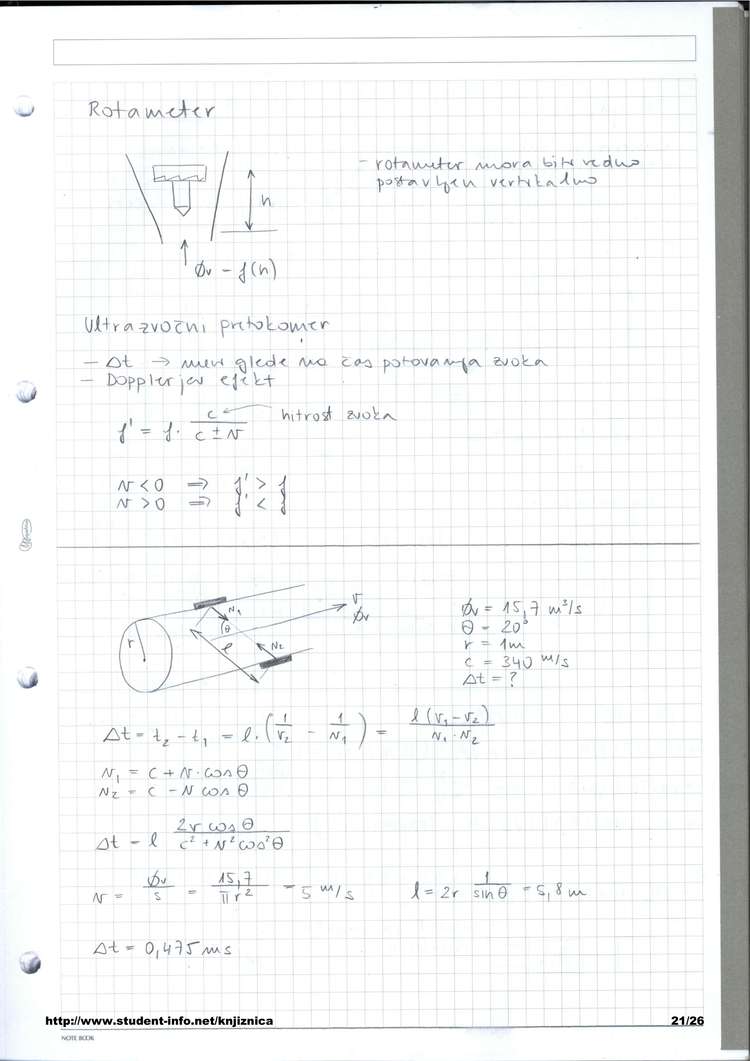 Rotameter
- rotameter mora biti vedno
postavljen vertikalno
h
ϕv = f(h)
Ultrazvočni pretokomer
- Δt → meri glede na čas potovanja zvoka
- Dopplerjev efekt
f' = f · c / (c ± v) hitrost zvoka
v < 0 ⇒ f' > f
v > 0 ⇒ f' < f
r
v1
θ
l
v2
v
ϕv
ϕv = 15,7 m³/s
θ = 20°
r = 1m
c = 340 m/s
Δt = ?
Δt = t2 - t1 = l · (1/v2 - 1/v1) = l (v1 - v2) / (v1 · v2)
v1 = c + v · cosθ
v2 = c - v cosθ
Δt = l 2v cosθ / (c² + v² cos²θ)
v = ϕv / S = 15,7 / (π r²) = 5 m/s l = 2r 1 / sinθ = 5,8 m
Δt = 0,475 ms
http://www.student-info.net/knjiznica 21/26
NOTE BOOK